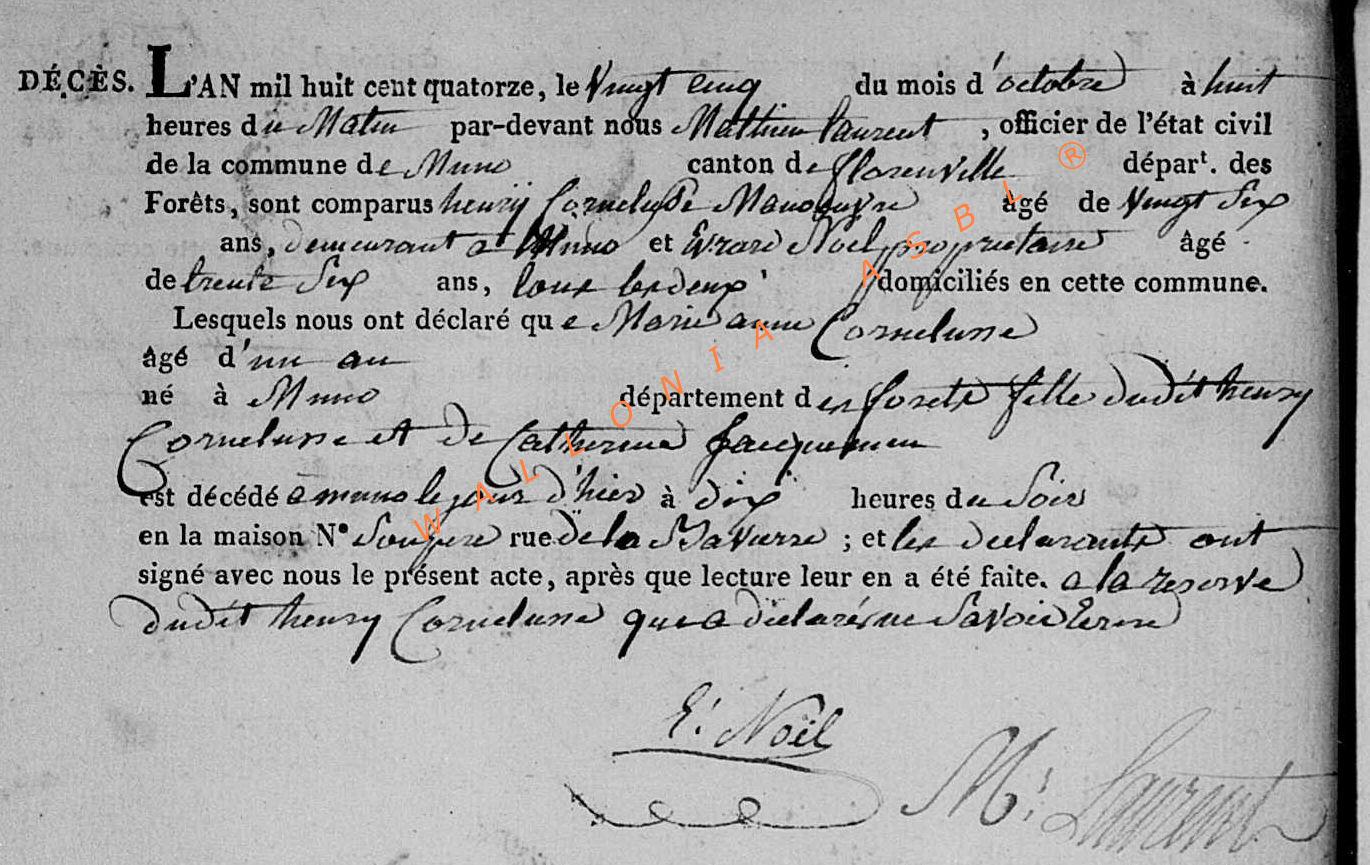 DÉCÈS. L'AN mil huit cent quatorze, le Vingt cinq du mois d'octobre à huit
heures du Matin par-devant nous Mathieu Laurent, officier de l'état civil
de la commune de Muno canton de florenville dépar<sup>t</sup>. des
Forêts, sont comparus henry Cornelusse Manoeuvre âgé de Vingt Six
ans, demeurant a Muno et Evrard Noel proprietaire âgé
de trente Six ans, tous les deux domiciliés en cette commune.
Lesquels nous ont déclaré que Marie anne Cornelusse
âgé d'un an
né à Muno département des forets fille dudit henry
Cornelusse et de Catherine Jacquemin
est décédé a muno le jour d'hier à dix heures du Soir
en la maison N° rue de la ; et les declarants ont
signé avec nous le présent acte, après que lecture leur en a été faite. a la reserve
dudit henry Cornelusse qui a declaré ne Savoir Ecrire
E: Noël
M: Laurent
WALLONIA ASBL ®